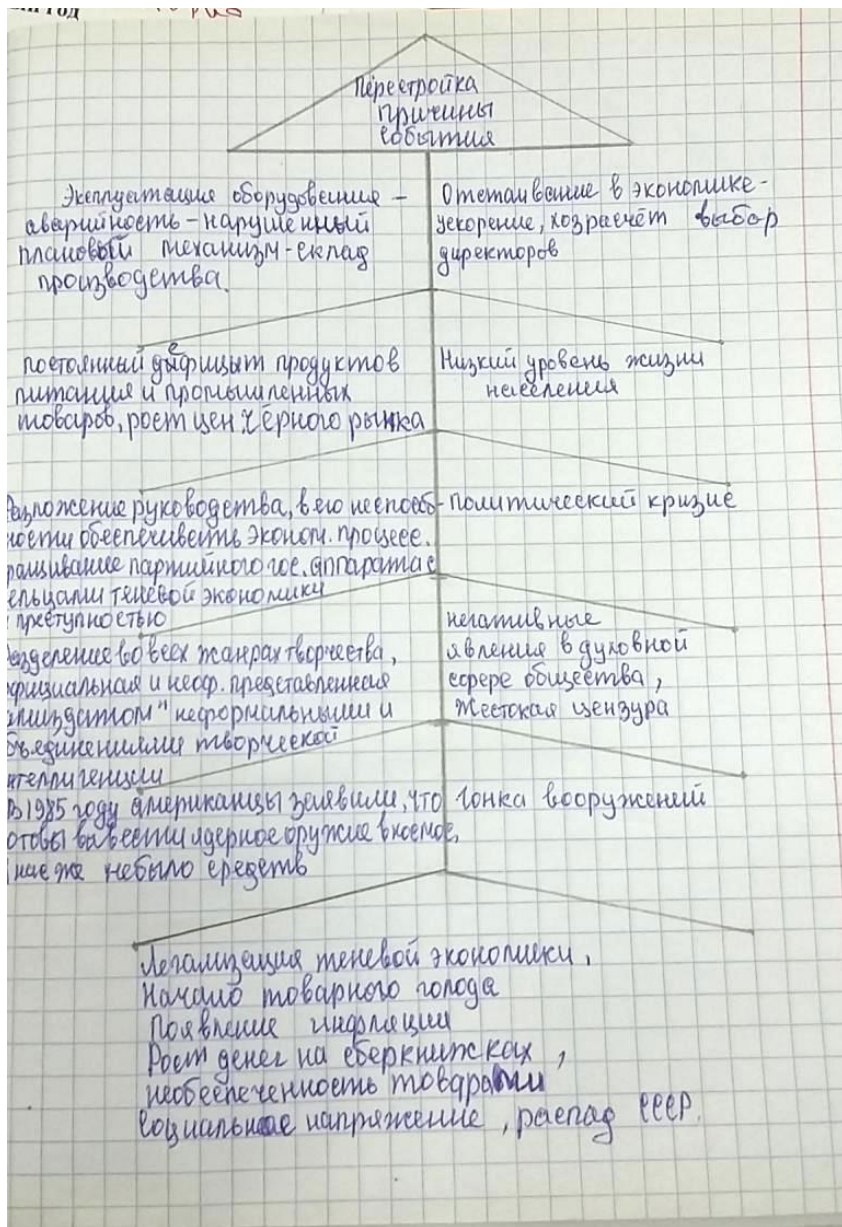 год
Перестройка
причины
события
Эксплуатация оборудования –
аварийность – нарушенный
плановый механизм – склад
производства.
Отставание в экономике –
ускорение, хозрасчёт выбор
директоров
постоянный дефицыт продуктов
питания и промышленных
товаров, рост цен чёрного рынка
Низкий уровень жизни
населения
Разложение руководства, в его неспособ-
ности обеспечивать эконом. процесс.
ращивание партийного гос. аппарата с
ельцами теневой экономики
преступностью
политический кризис
Разделение во всех жанрах творчества,
фициальная и неоф. представленная
амиздатом" неформальными и
бъединениями творческой
нтеллигенции
негативные
явления в духовной
сфере общества,
жесткая цензура
В 1985 году американцы заявили, что
отовы вывести ядерное оружие в космос,
нас же небыло средств
гонка вооружений
Легализация теневой экономики,
Начало товарного голода
Появление инфляции
Рост денег на сберкнижках,
необеспеченность товарами
Социальное напряжение, распад СССР.